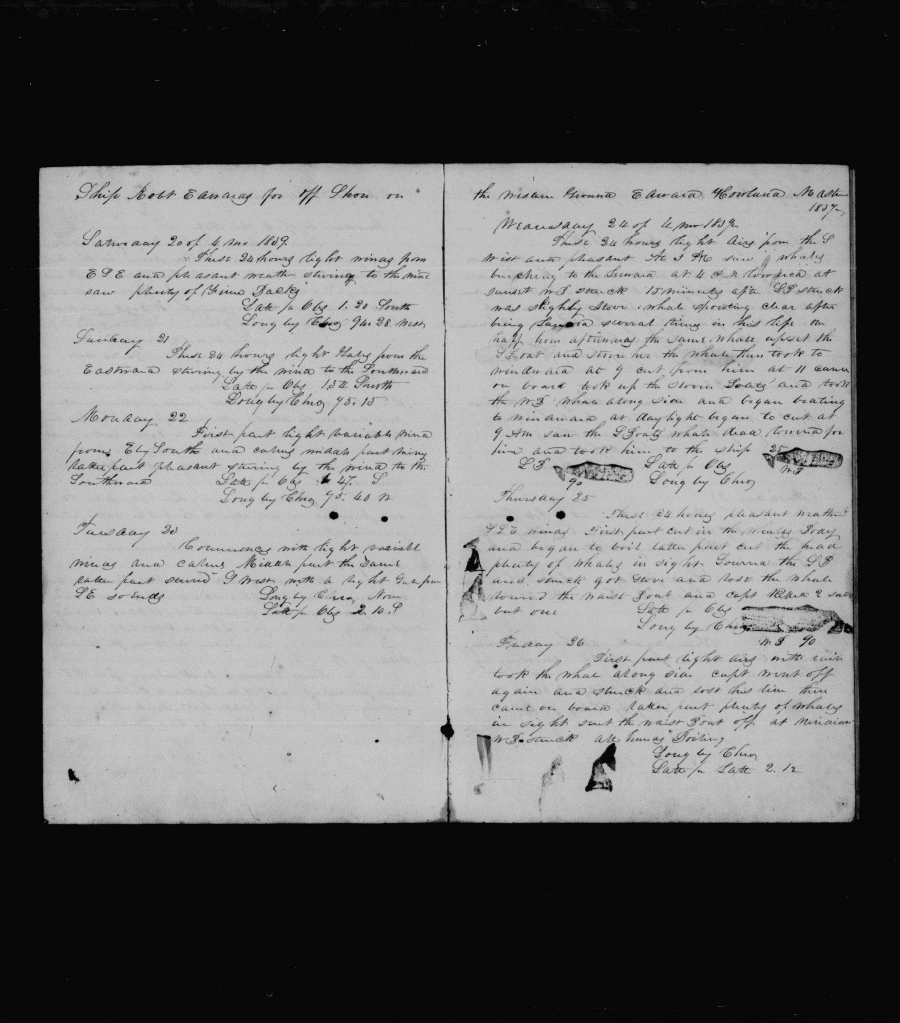 Ship Robt Edwards for off Shore on
Saturday 20 of 4 mo 1839
These 24 hours light winds from
E S E and pleasant weather steering by the wind
saw plenty of Fine Backs
Latt pr Obs 1.20 South
Long by Chro 94.28 West
Sunday 21
These 24 hours light Gales from the
Eastward steering by the wind to the Southward
Latt pr Obs South
Long by Chro 95.15
Monday 22
First part light variable wind
from E by South and calms middle part
Latter part pleasant steering by the wind to the
Southward Latt pr Obs 47 S
Long by Chro 95.40 W
Tuesday 23
Commences with light variable
winds and calms Middle part the Same
Latter part steered S West with a light Gale from
S E so Ends Long by Chro None
Latt pr Obs 2.10 S
the western Ground Edward Howland Master
1839
Wednesday 24 of 4 mo 1839
These 24 hours light Airs from the S
West and pleasant At 3 PM saw whales
breaching to the Leward at 4 P M lowered at
sunset W B struck 15 minutes after LB struck
was slightly stove whale spouting clear after
being Lanced several times in his life in
half hour afterwards the Same whale upset the
S Boat and stove her the whale then took to
windward at 9 cut from him at 11 came
on board took up the stoven Boats and took
the WB whale along side and began beating
to windward at day light began to cut at
9 AM saw the S Boats whale dead lowered for
him and took him to the ship 25
LB Latt pr Obs WB
90 Long by Chro
Thursday 25
These 24 hours pleasant weather
S S E winds First part cut in the Boats Body
and began to boil latter part cut the head
plenty of whales in sight Lowered the SB
and struck got stove and lost the whale
lowered the Waist Boat and capt 2
but one Latt pr Obs
Long by Chro
WB 90
Friday 26
First part light airs with rain
took the whale along side capt went off
again and struck and lost his line then
came on board Latter part plenty of whales
in sight sent the waist Boat off at meridian
WB struck all hands Boiling
Long by Chro
Latt pr Latt 2.12